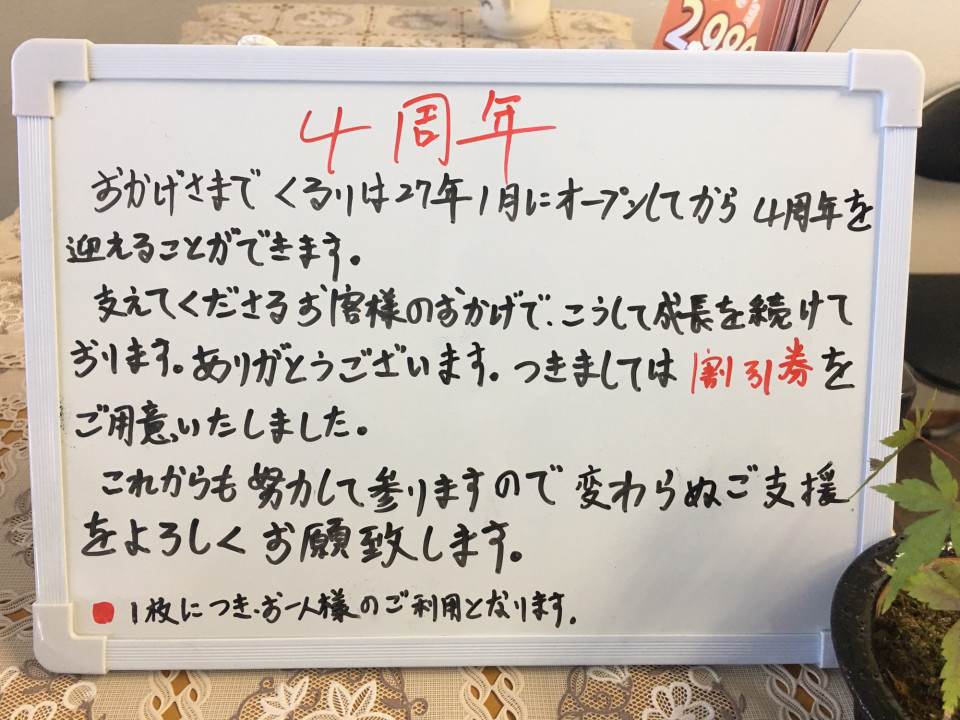 2,990
4周年
おかげさまで くるりは27年1月にオープンしてから 4周年を
迎えることができます。
支えてくださるお客様のおかげで、こうして成長を続けて
おります。ありがとうございます。つきましては割引券を
ご用意いたしました。
これからも努力して参りますので変わらぬご支援
をよろしくお願致します。
●1枚につき、お一人様のご利用となります。